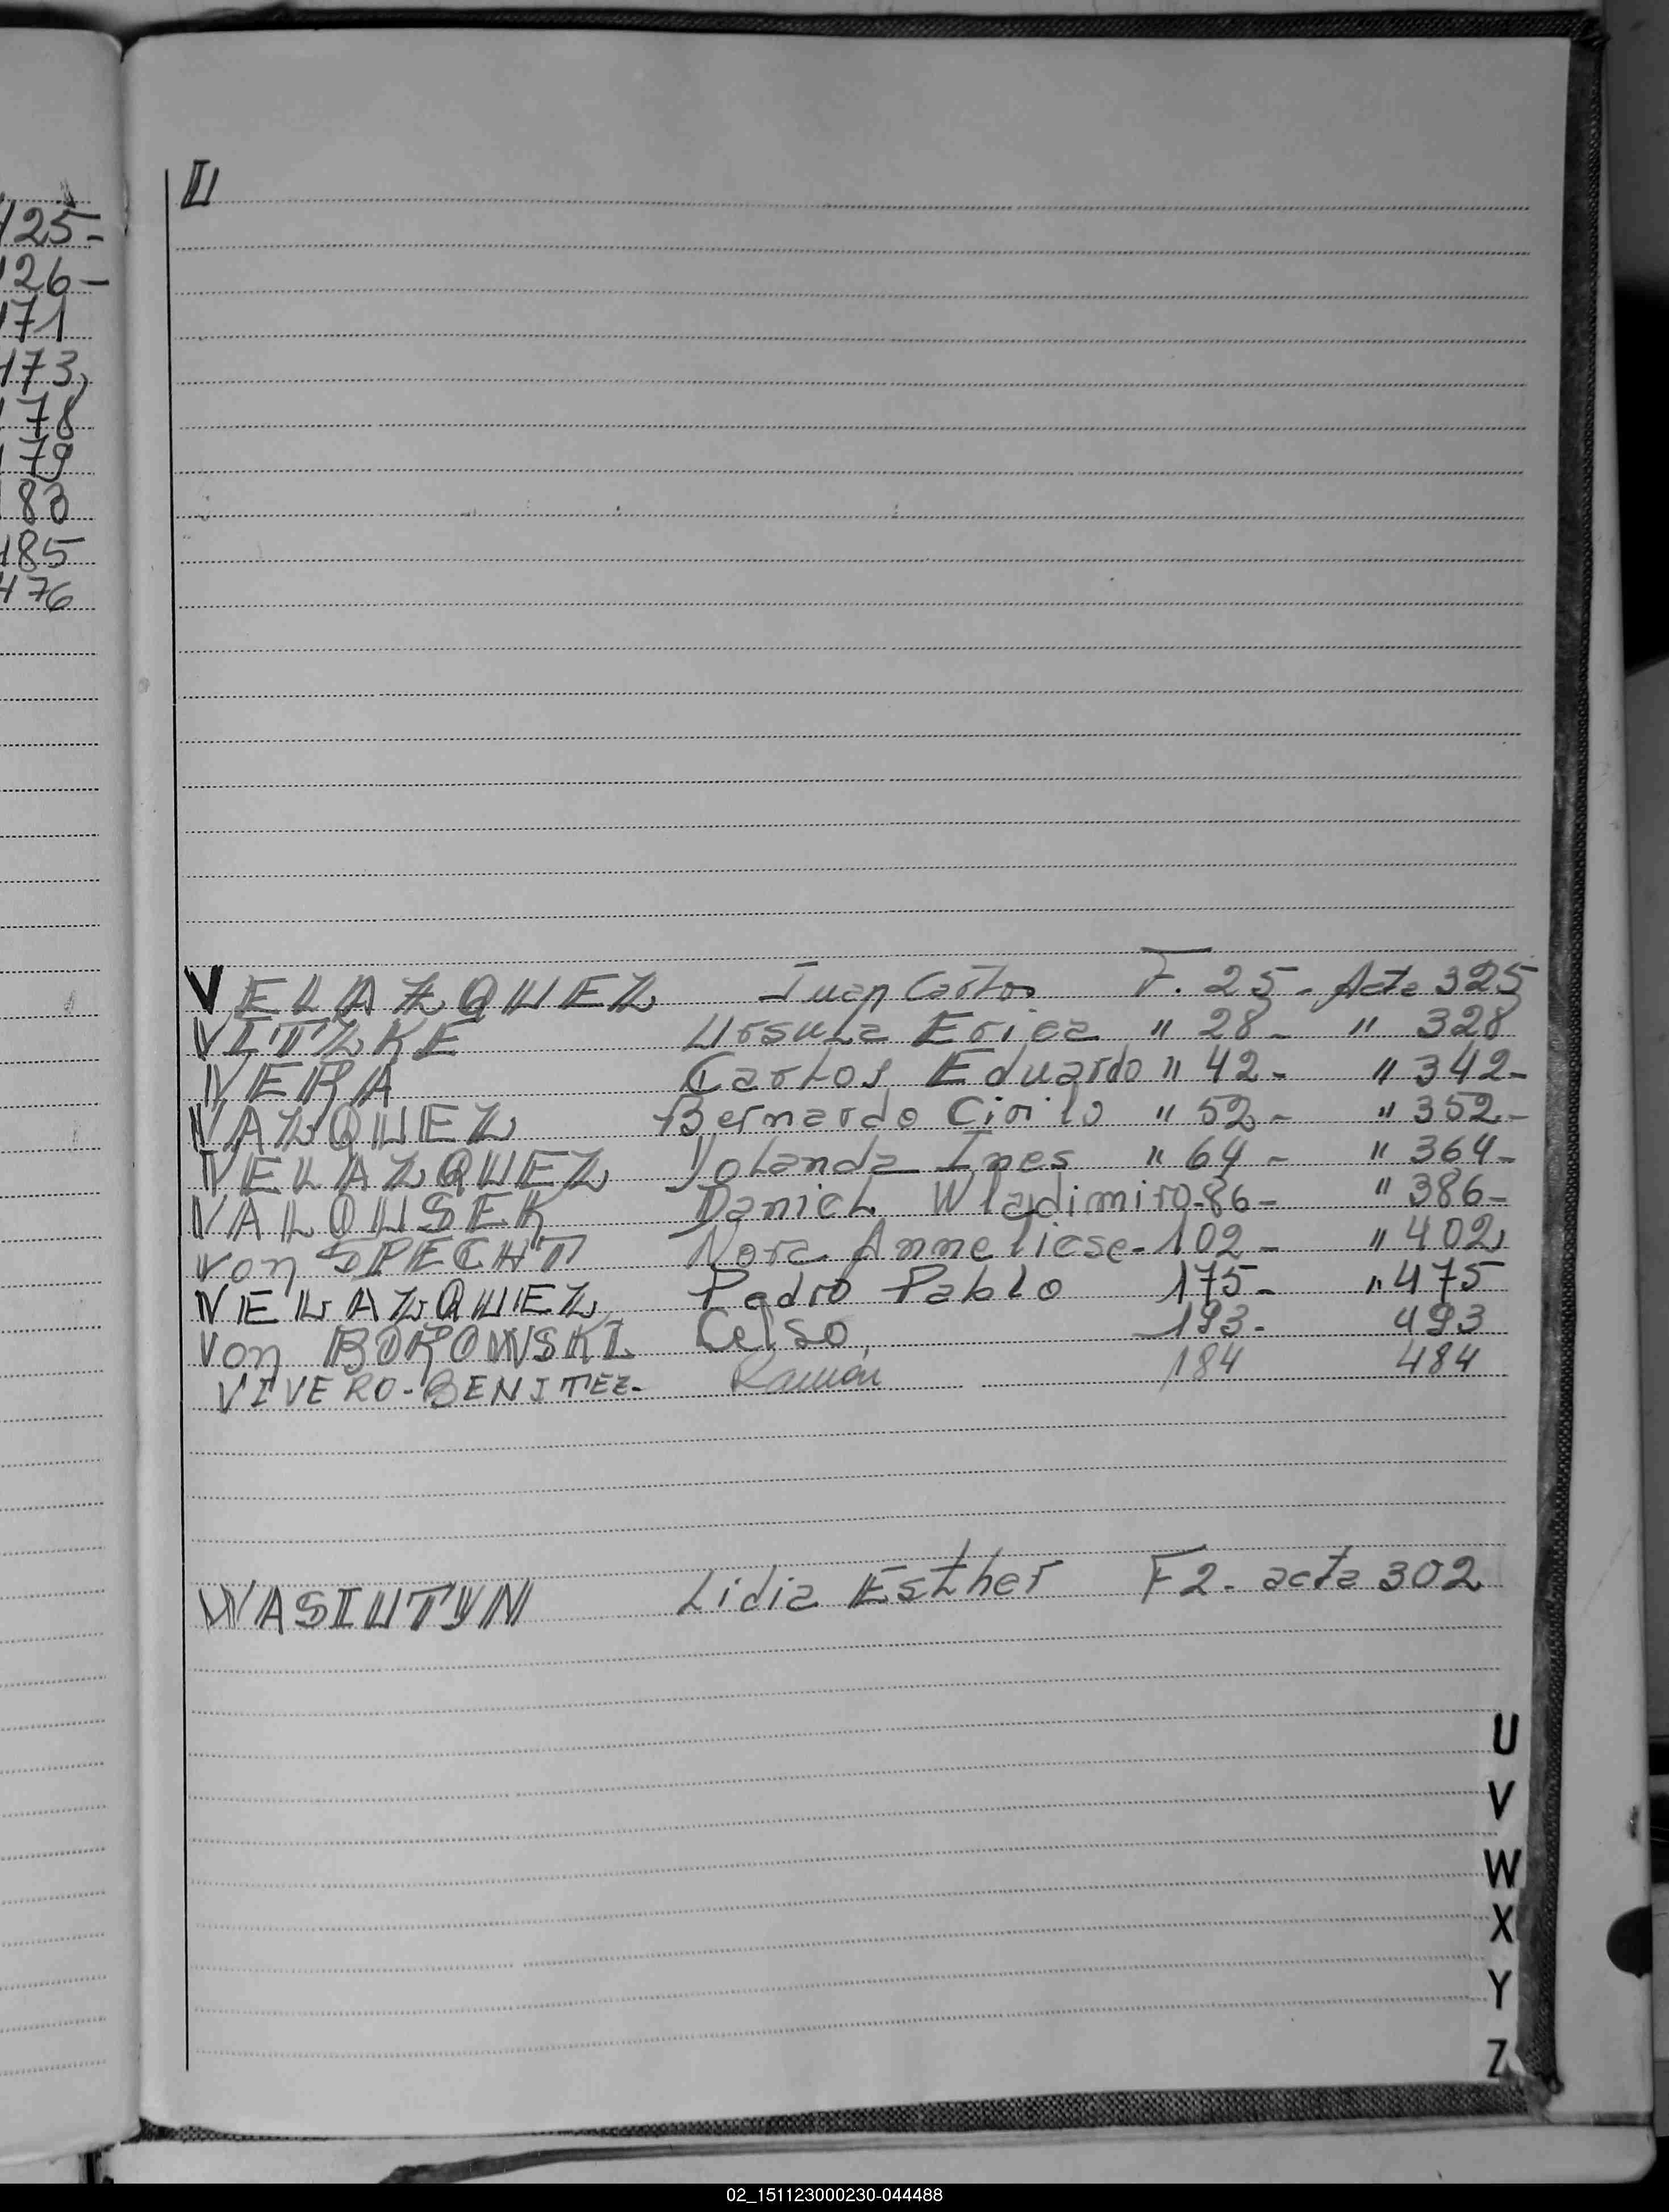 125-
126-
171
173,
178
179
183
185
476
U
VELAZQUEZ Juan Carlos F. 25 - Acta 325
VITZKE Ursula Erica " 28 - " 328
VERA Carlos Eduardo " 42 - " 342-
VAZQUEZ Bernardo Cirilo " 52 - " 352-
VELAZQUEZ Yolanda Ines " 64 - " 364-
VALOUSEK Daniel Wladimiro-86- " 386-
von SPECHT Nora Anneliese-102 - " 402,
VELAZQUEZ, Pedro Pablo 175- " 475
von BOROWSKI Celso, 193- 493
VIVERO-BENITEZ- Ramón 184 484
WASIUTYN Lidia Esther F 2 - acta 302
U
V
W
X
Y
Z
02_151123000230-044488